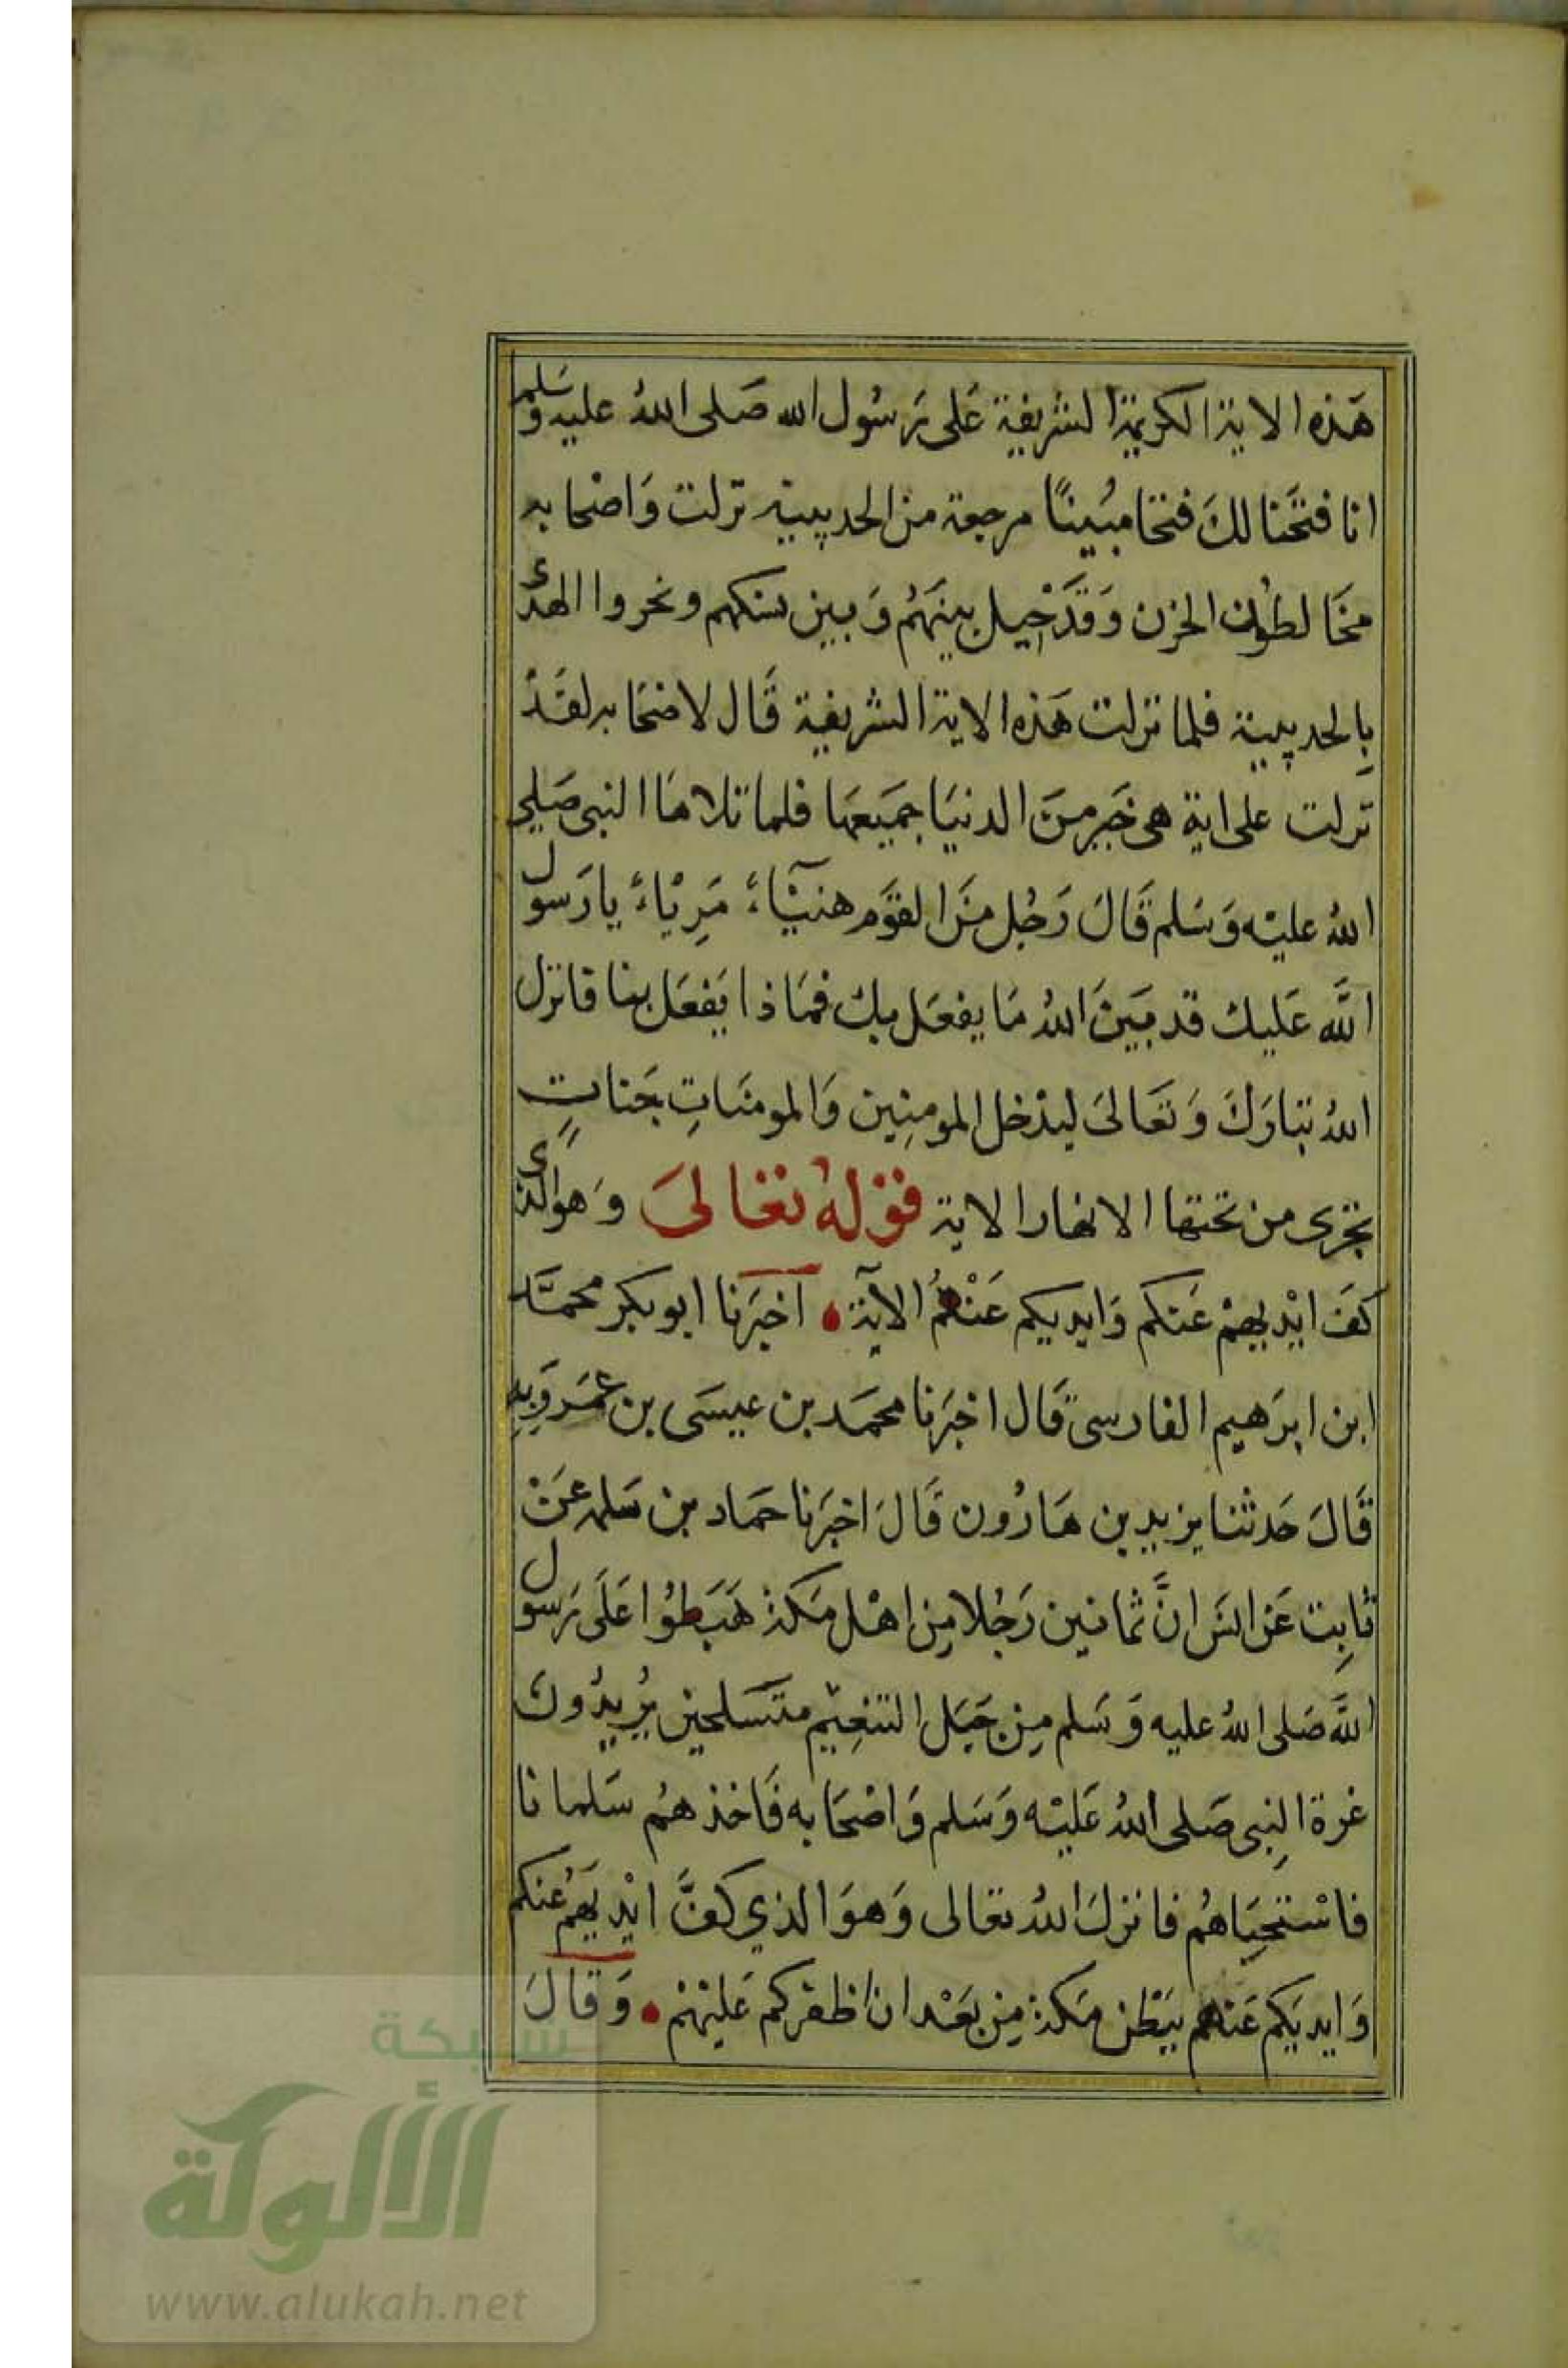 هَذه الاية الكريمة الشريفة عَلى رَسُول الله صَلى اللهُ عليه وسَلم
انا فتَحنا لكَ فتحا مبُينًا مرجعة من الحديبية نزلت وَاصحابه
مخَالطون الحزن وَقدَ حْيل بينَهُم وَبين نسكهم ونحروا الهدى
بِالحديبية فلما نزلت هَذه الاية الشريفة قَال لاصحَابه لقَدْ
نَزلت على اية هى خَير منَ الدنيَا جميَعهَا فلما تلاهَا النبى صَلى
اللهُ عليْه وَسَلم قَالَ رَجُل منَ القوَم هنيْئآء مَرِيْاء يا رَسول
اللَّه عَليك قد بَينَ اللهُ مَا يفعَل بك فمَاذا يَفعَل بنا فانزل
اللهُ تبَارَكَ وَتعَالىَ ليدْخل المومِنِين وَالمومنَاتِ جَناتٍ
تجْرى من تحتها الانهار الاية قوْلهُ تعَالىَ وَهو الذى
كفَ ايْدِيهمْ عَنكم وَايديكم عَنْهُم الآية • اخبَرنا ابو بكر محمَّد
ابن ابرَهيم الفارسى قَال اخبَرنا محمَد بن عيسَى بن عمَروَيهِ
قَالَ حَدثنا يزيد بن هَارُون قَالَ اخبَرنا حمَاد بن سَلمه عَنْ
ثابِت عَن انسَ انَّ ثمانين رَجُلا مِن اهْل مَكة هَبَطوُا عَلَى رَسول
اللَّه صَلى اللهُ عليه وَسَلم مِن جَبَل التنعِيْم متسَلحين يُريدُون
غرة النِبى صَلى اللهُ عَليْه وَسَلم وَاصْحَابه فَاخذهُم سَلما نا
فاسْتحيَاهُم فانزلَ اللهُ تعَالى وَهوَ الذي كفَّ ايْديَهم عنكم
وَايديَكم عَنهم ببَطْن مَكة مِن بعَد ان اظفركم عَليْهمْ • وَقالَ
شبكة
الألوكة
www.alukah.net